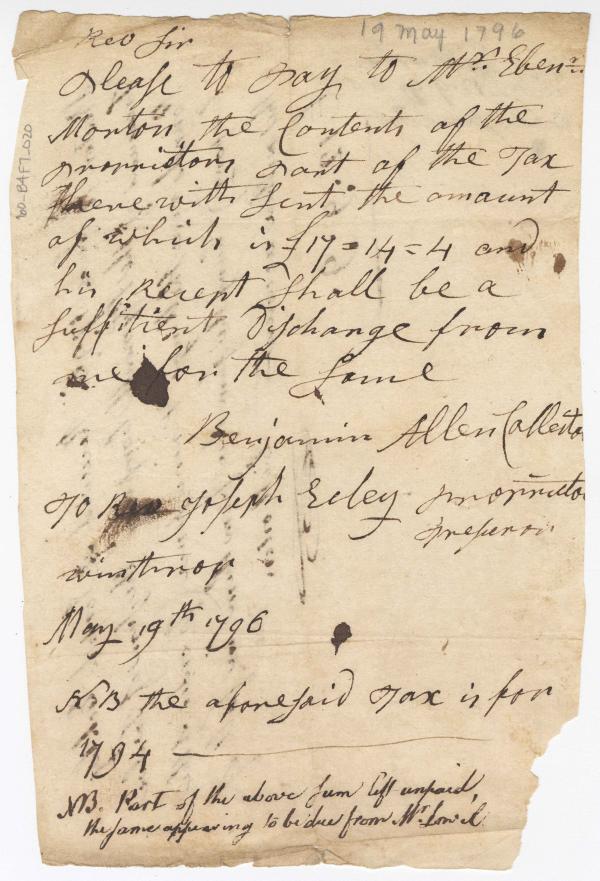 19 May 1796
Rev Sir
Please to pay to Mr. Eben.r
Morton the Contents of the
proprietors part of the Tax
herewith Sent the amount
of which is £17=14=4 and
his Recept Shall be a
Suffitient Discharge from
me for the Same
Benjamin Allen Collecto
To Rev Joseph Eeley proprieto
Winthrop
May 19th 1796
NB the aforesaid Tax is for
1794
NB. Part of the above sum left unpaid,
the same appearing to be due from Mr.
60-84F7.020